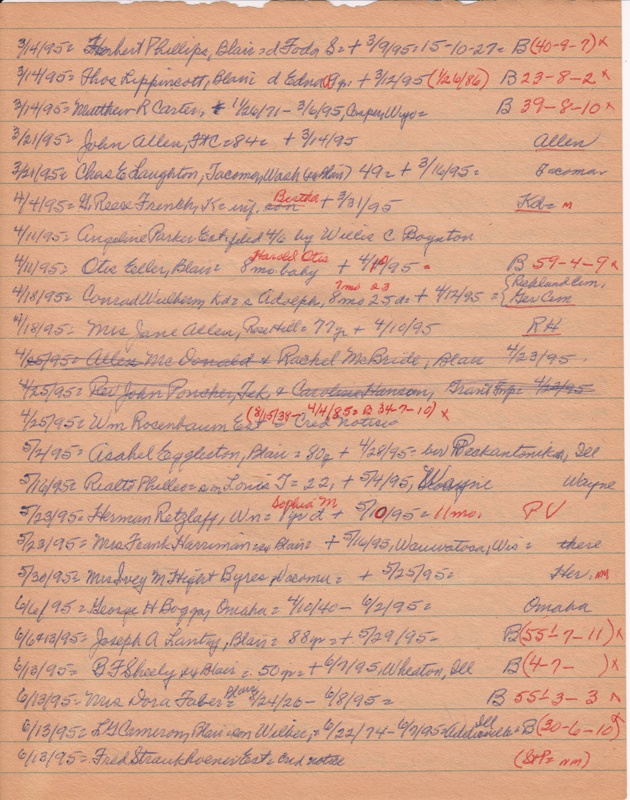 3/14/95= Herbert Phillips, Blair = d Foda S= + 3/9/95= 15-10-27= B(40-9-7)x
3/14/95= Thos Lippincott, Blair d Edna + 3/2/95 (1/26/86) B 23-8-2 x
3/14/95= Matthew R Carter, 1/26/71 - 3/6/95, Casper, Wyo= B 39-8-10 x
3/21/95= John Allen, = 84= + 3/14/95 Allen
3/21/95= Chas E Laughton, Tacoma, Wash (ex Blair) 49= + 3/16/95= Tacoma
4/4/95= G. Reese French, K= inf. con Bertha + 3/31/95 Kd= m
4/11/95= Angeline Parker Est, filed 4/6 by Willis C Boynton
4/11/95= Otis Eller, Blair= Harold Otis 8mo baby + 4/10/95= B 59-4-9 x
4/18/95= Conrad Wulbern, Kd= s Adolph, 7mo 23 8mo 25da + 4/12/95= {Richland Cem, Ger Cem
4/18/95= Mrs Jane Allen, Rose Hill= 77yr + 4/10/95 RH
4/25/95= Allen McDonald & Rachel McBride, Blair 4/23/95.
4/25/95= Rev John Poucher, Tek, & Caroline Hanson, Grant Twp= 4/22/95
4/25/95= Wm Rosenbaum Est= Cred notice (8/15/38- 4/4/85= B 34-7-10) x
5/2/95= Asahel Eggleston, Blair= 80y + 4/28/95= Ill
5/16/95= Realto Phillio= son Louis T= 22, + 5/4/95, Wayne Wayne
5/23/95= Herman Retzlaff, Wn= Sophia M 1yr d + 5/10/95= 11mo. PV
5/23/95= Mrs Frank Harriman= ex Blair= + 5/16/95, Wauwatosa, Wis= there
5/30/95= Mrs Ivey M. Hight Byres, Tacoma= + 5/25/95= Her, nm
6/6/95= George H Boggs, Omaha= 4/10/40- 6/2/95= Omaha
6/6&13/95= Joseph A Lantry, Blair= 88yr= + 5/29/95= B(55½-7-11)x
6/13/95= B F Sheely ex Blair= 50yr= + 6/7/95 Wheaton, Ill B(4-7- )x
6/13/95= Mrs Dora Faber= Blair 4/24/26- 6/8/95= B 55½-3-3 x
6/13/95= L G Cameron, Blair= son Wilber,= 6/22/74- 6/7/95= Ill B(30-6-10)x
6/13/95= Fred Straukhoener Est= cred notice (StP= nm)